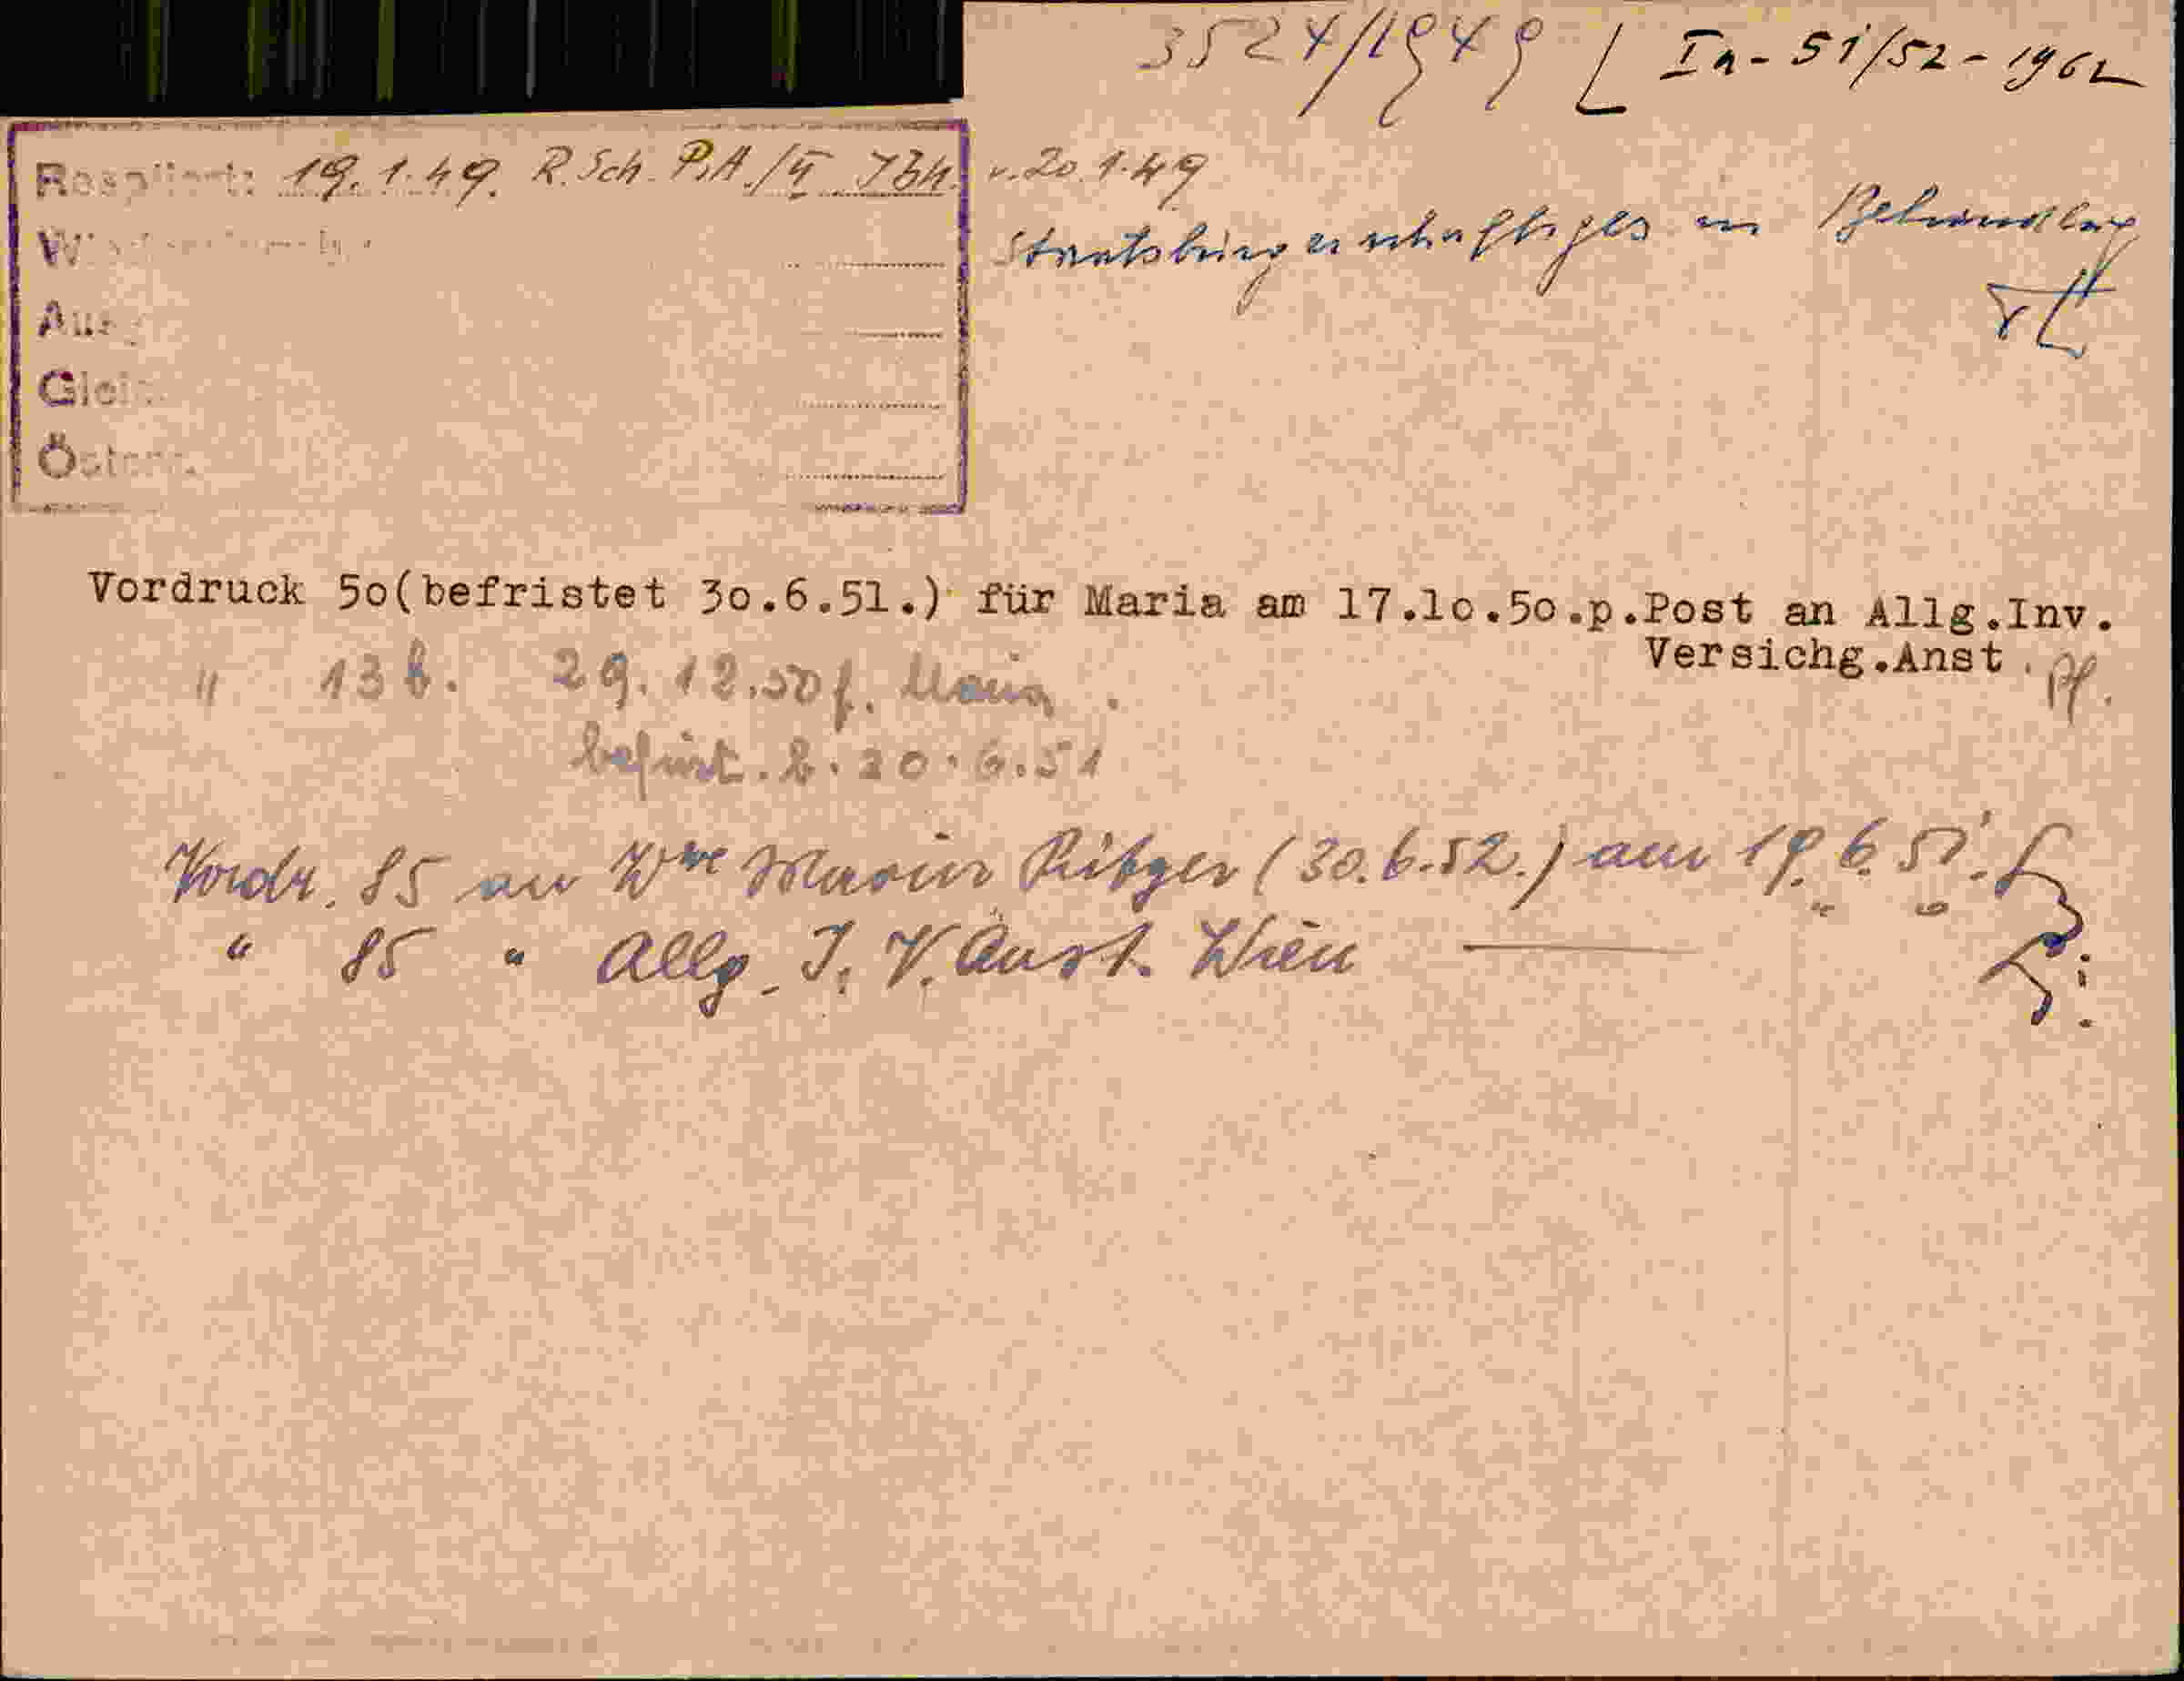 3524/1949 Ia - 51/52 - 1962
Respiziert: 19.1.49. R. Sch. P.A./II v. 20.1.49
Staatsbürgerschaftsges in Behandlung
Vordruck 50(befristet 30.6.51.) für Maria am 17.10.50.p.Post an Allg.Inv.
Versichg.Anst.
" 13 b. 29.12.50 f. Maria.
befrist. b. 30.6.51
Vordr. 85 an Wwe Maria (30.6.52.) am 19.6.51.
" 85 " Allg. I. V. Anst. Wien —